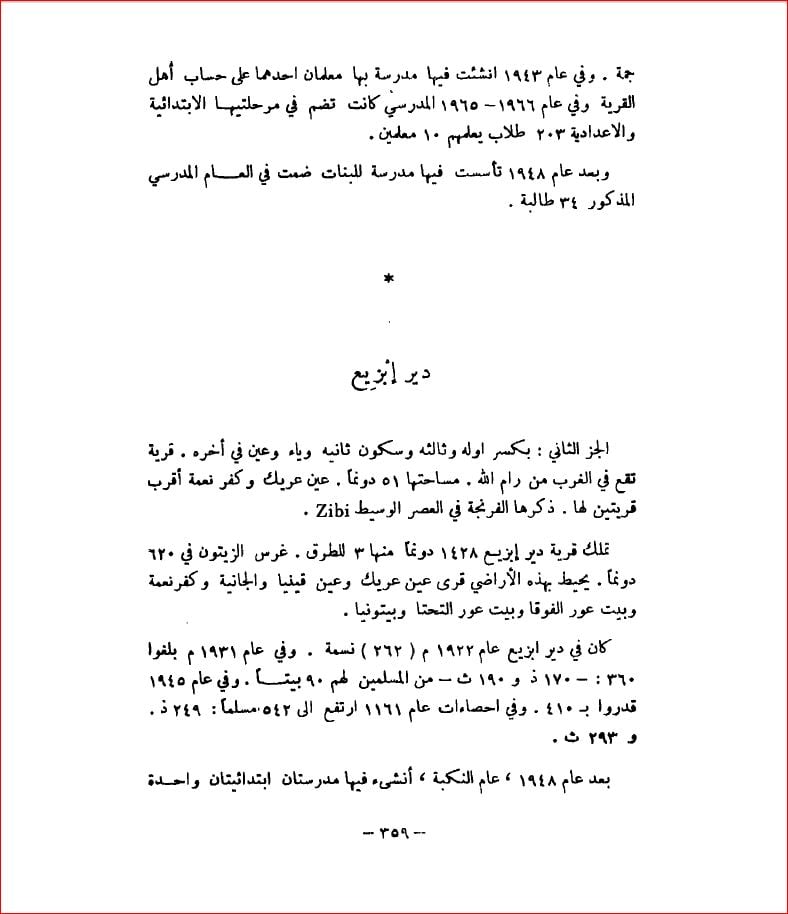 جمة . وفي عام ١٩٤٣ انشئت فيها مدرسة بها معلمان احدهما على حساب أهل
القرية وفي عام ١٩٦٦ – ١٩٦٥ المدرسي كانت تضم في مرحلتيهـا الابتدائية
والاعدادية ٢٠٣ طلاب يعلمهم ١٠ معلمين .
وبعد عام ١٩٤٨ تأسست فيها مدرسة للبنات ضمت في العـــام المدرسي
المذكور ٣٤ طالبة .
*
دير إبْزِيِع
الجز الثاني : بكسر اوله وثالثه وسكون ثانيه وياء وعين في أخره . قرية
تقع في الغرب من رام الله . مساحتها ٥١ دونماً . عين عريك وكفر نعمة أقرب
قريتين لها . ذكرها الفرنجة في العصر الوسيط Zibi .
تملك قرية دير إبزيـع ١٤٢٨ دونماً منها ٣ للطرق . غرس الزيتون في ٦٢٠
دونماً . يحيط بهذه الأراضي قرى عين عريك وعين قينيا والجانية وكفرنعمة
وبيت عور الفوقا وبيت عور التحتا وبيتونيا .
كان في دير ابزيع عام ١٩٢٢ م ( ٢٦٢ ) نسمة . وفي عام ١٩٣١ م بلغوا
٣٦٠ : – ١٧٠ ذ و ١٩٠ ث – من المسلمين لهم ٩٠ بيتـــاً . وفي عام ١٩٤٥
قدروا بـ ٤١٠ . وفي احصاءات عام ١١٦١ ارتفع الى ٥٤٢ مسلماً : ٢٤٩ ذ .
و ٢٩٣ ث .
بعد عام ١٩٤٨ ، عام النكبة ، أنشىء فيها مدرستان ابتدائيتان واحـدة
– ٣٥٩ –